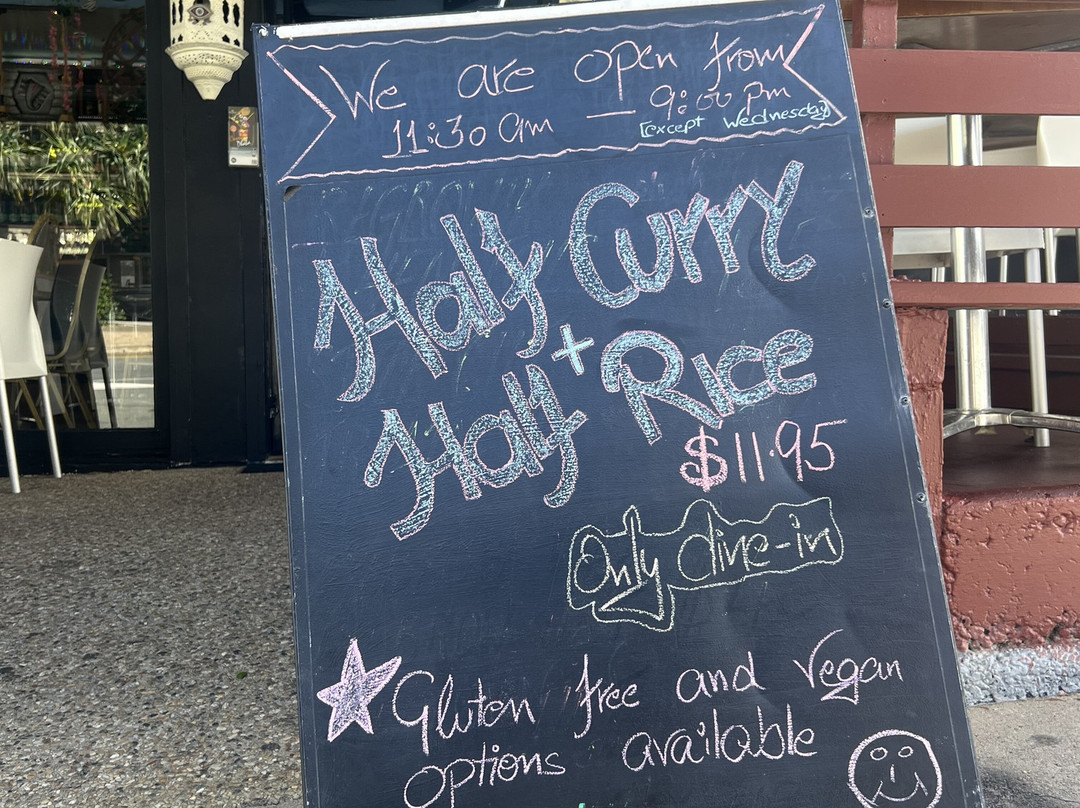 We are open from
11:30 am — 9:00 pm
[except Wednesday]
Half Curry
+
Half Rice
$11.95
Only dine-in
Gluten free and Vegan
options available